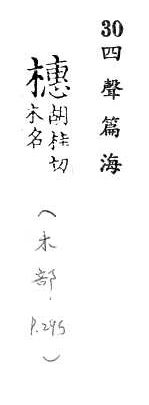 30四聲篇海
橞胡桂切
木名
(木部.
P.295
)